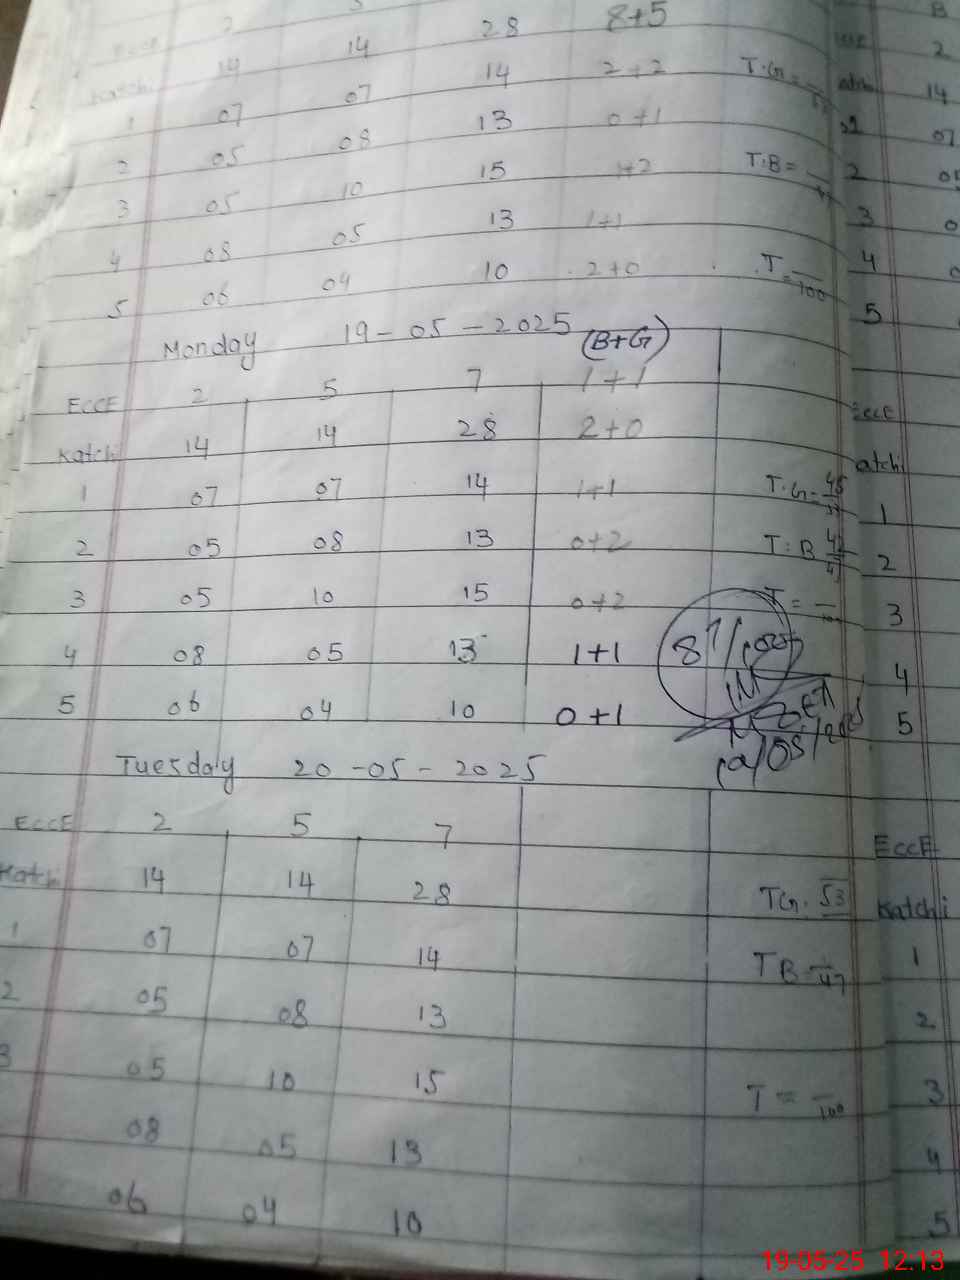 8+5
ECCE 2 5 28
Katchi 14 14 14 2+2 T.G =
1 07 07 13 0+1
2 05 08 15 1+2 T.B =
3 05 10 13 1+1
4 08 05 10 2+0 T = /100
5 06 04
Monday 19-05-2025 (B+G)
ECCE 2 5 7 1+1
Katchi 14 14 28 2+0
1 07 07 14 1+1 T.G =
2 05 08 13 0+2 T:B
3 05 10 15 0+2 T = /100
4 08 05 13 1+1 87/100
5 06 04 10 0+1
Tuesday 20-05-2025
ECCE 2 5 7
Katchi 14 14 28 TG. /53
1 07 07 14 TB /47
2 05 08 13
3 05 10 15 T = /100
08 05 13
06 04 10
B
2
14
07
2
3
4
5
ECCE
atchi
1
2
3
4
5
ECCE
Katchi
1
2
3
4
5
19-05-25 12:13